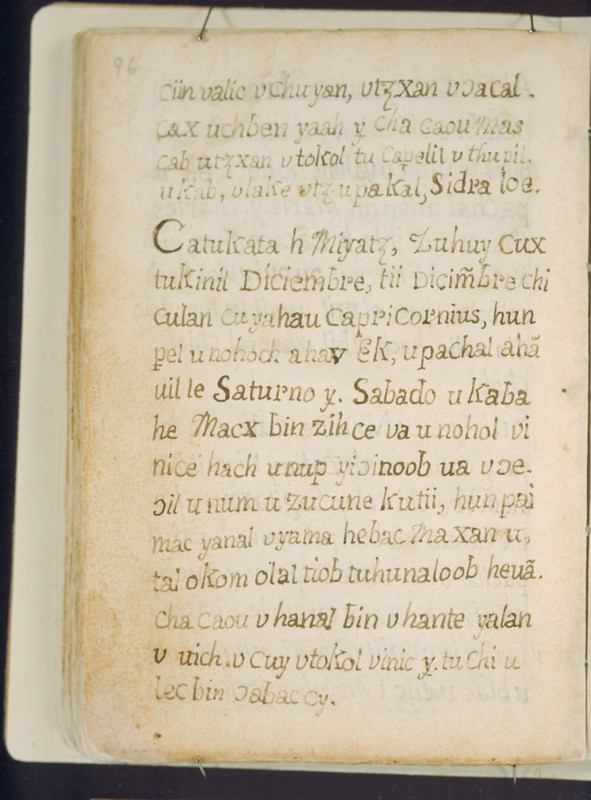 96
ciin valic v chuyan, vtzxan v ɔacal.
cax uchben yaah y. cha caou Mas
cab utzxan vtokol tu capelil v thupil.
u kab, v lake vtz upakal, Sidra loe.
Catukata h Miyatz, Zuhuy Cux
tukinil Diciembre, tii Dicim̃bre chi
culan cuyahau Capricornius, hun
pel u nohoch ahav Ek, u pachal ahã
uil le Saturno y. Sabado u kaba
he Macx bin zihce va u nohol vi
nice hach unup yiɔinoob ua v ɔe.
ɔil u num u zucune kutii, hun pai
mac yanal vyama hebac Ma xan u,
tal okom olal tiob tuhunaloob heuã.
cha caou v hanal bin v hante yalan
v uich. v cuy vtokol vinic y. tu chi u
lec bin ɔabac cy.